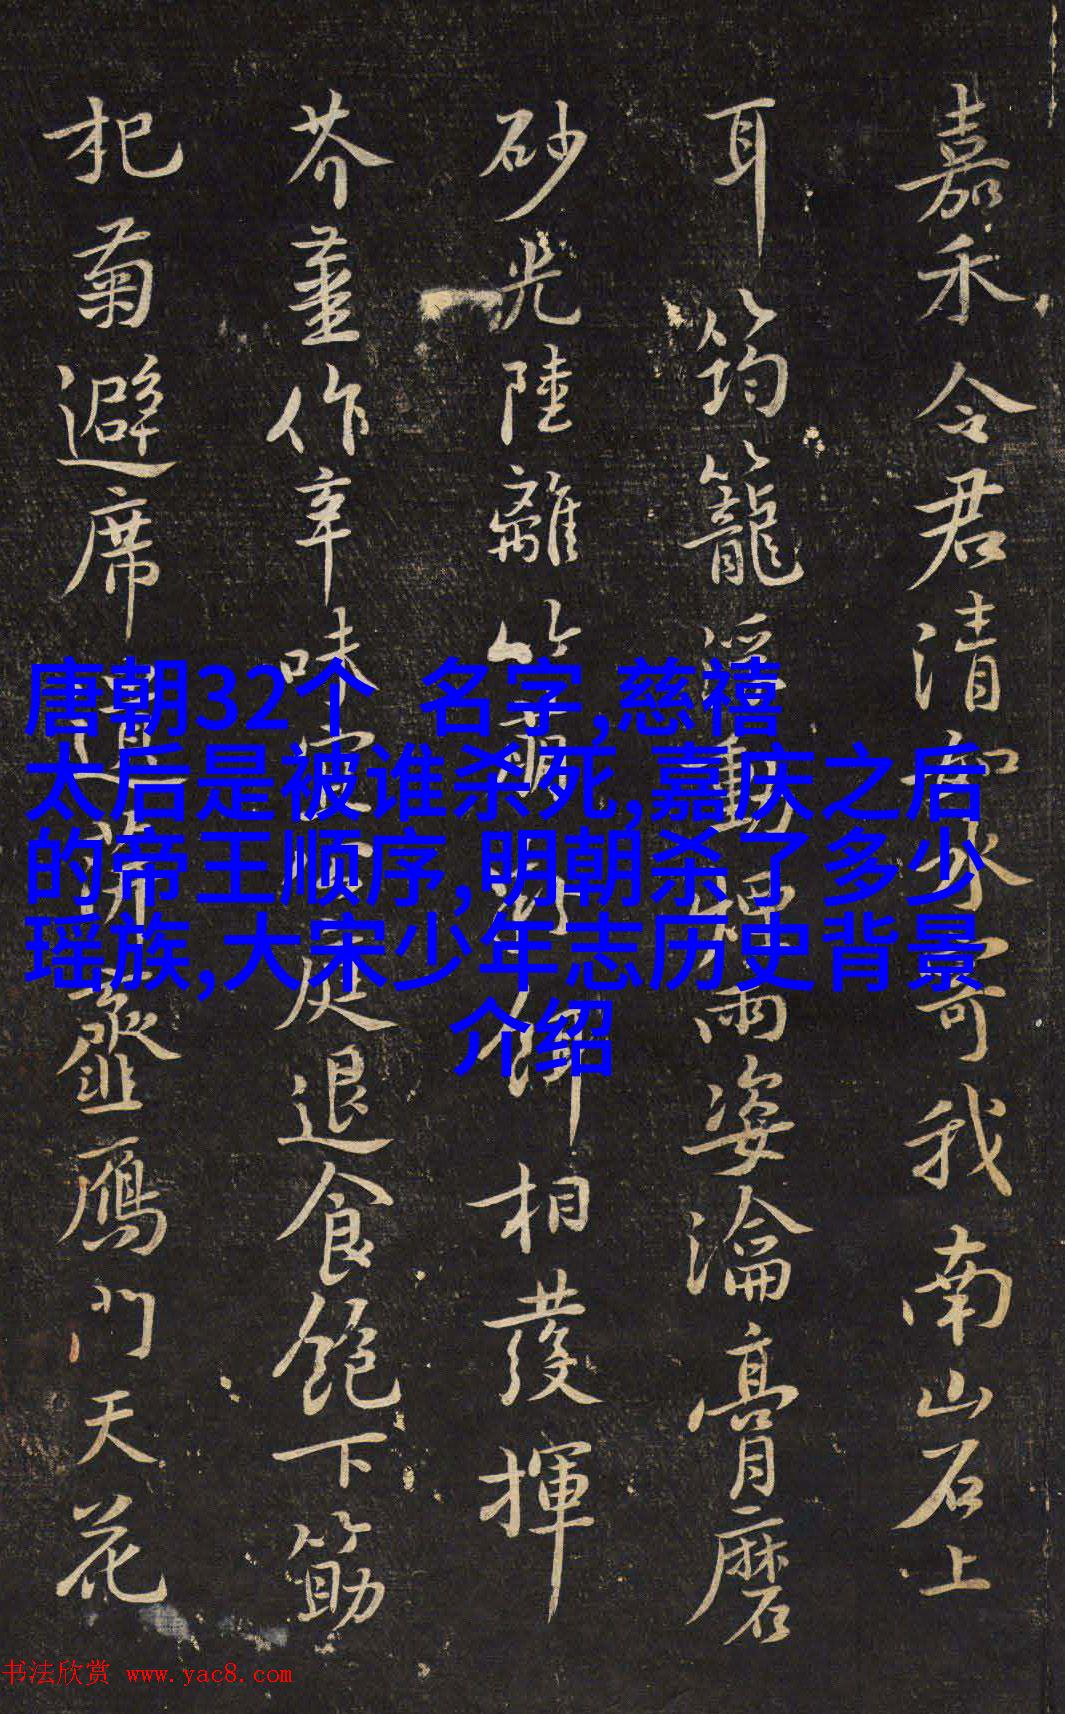 嘉禾令君清如水寄我南山石上
耳筠籠浮動煙雨姿淪膏磨
砂光陸離
相發揮
芥薑作辛味
庭退食飽下筯
杞菊避席
虀鴈門天花
唐朝32个 名字,慈禧
太后是被谁杀死,嘉庆之后
的帝王顺序,明朝杀了多少
瑶族,大宋少年志历史背景
介绍
书法欣赏 www.yac8.com